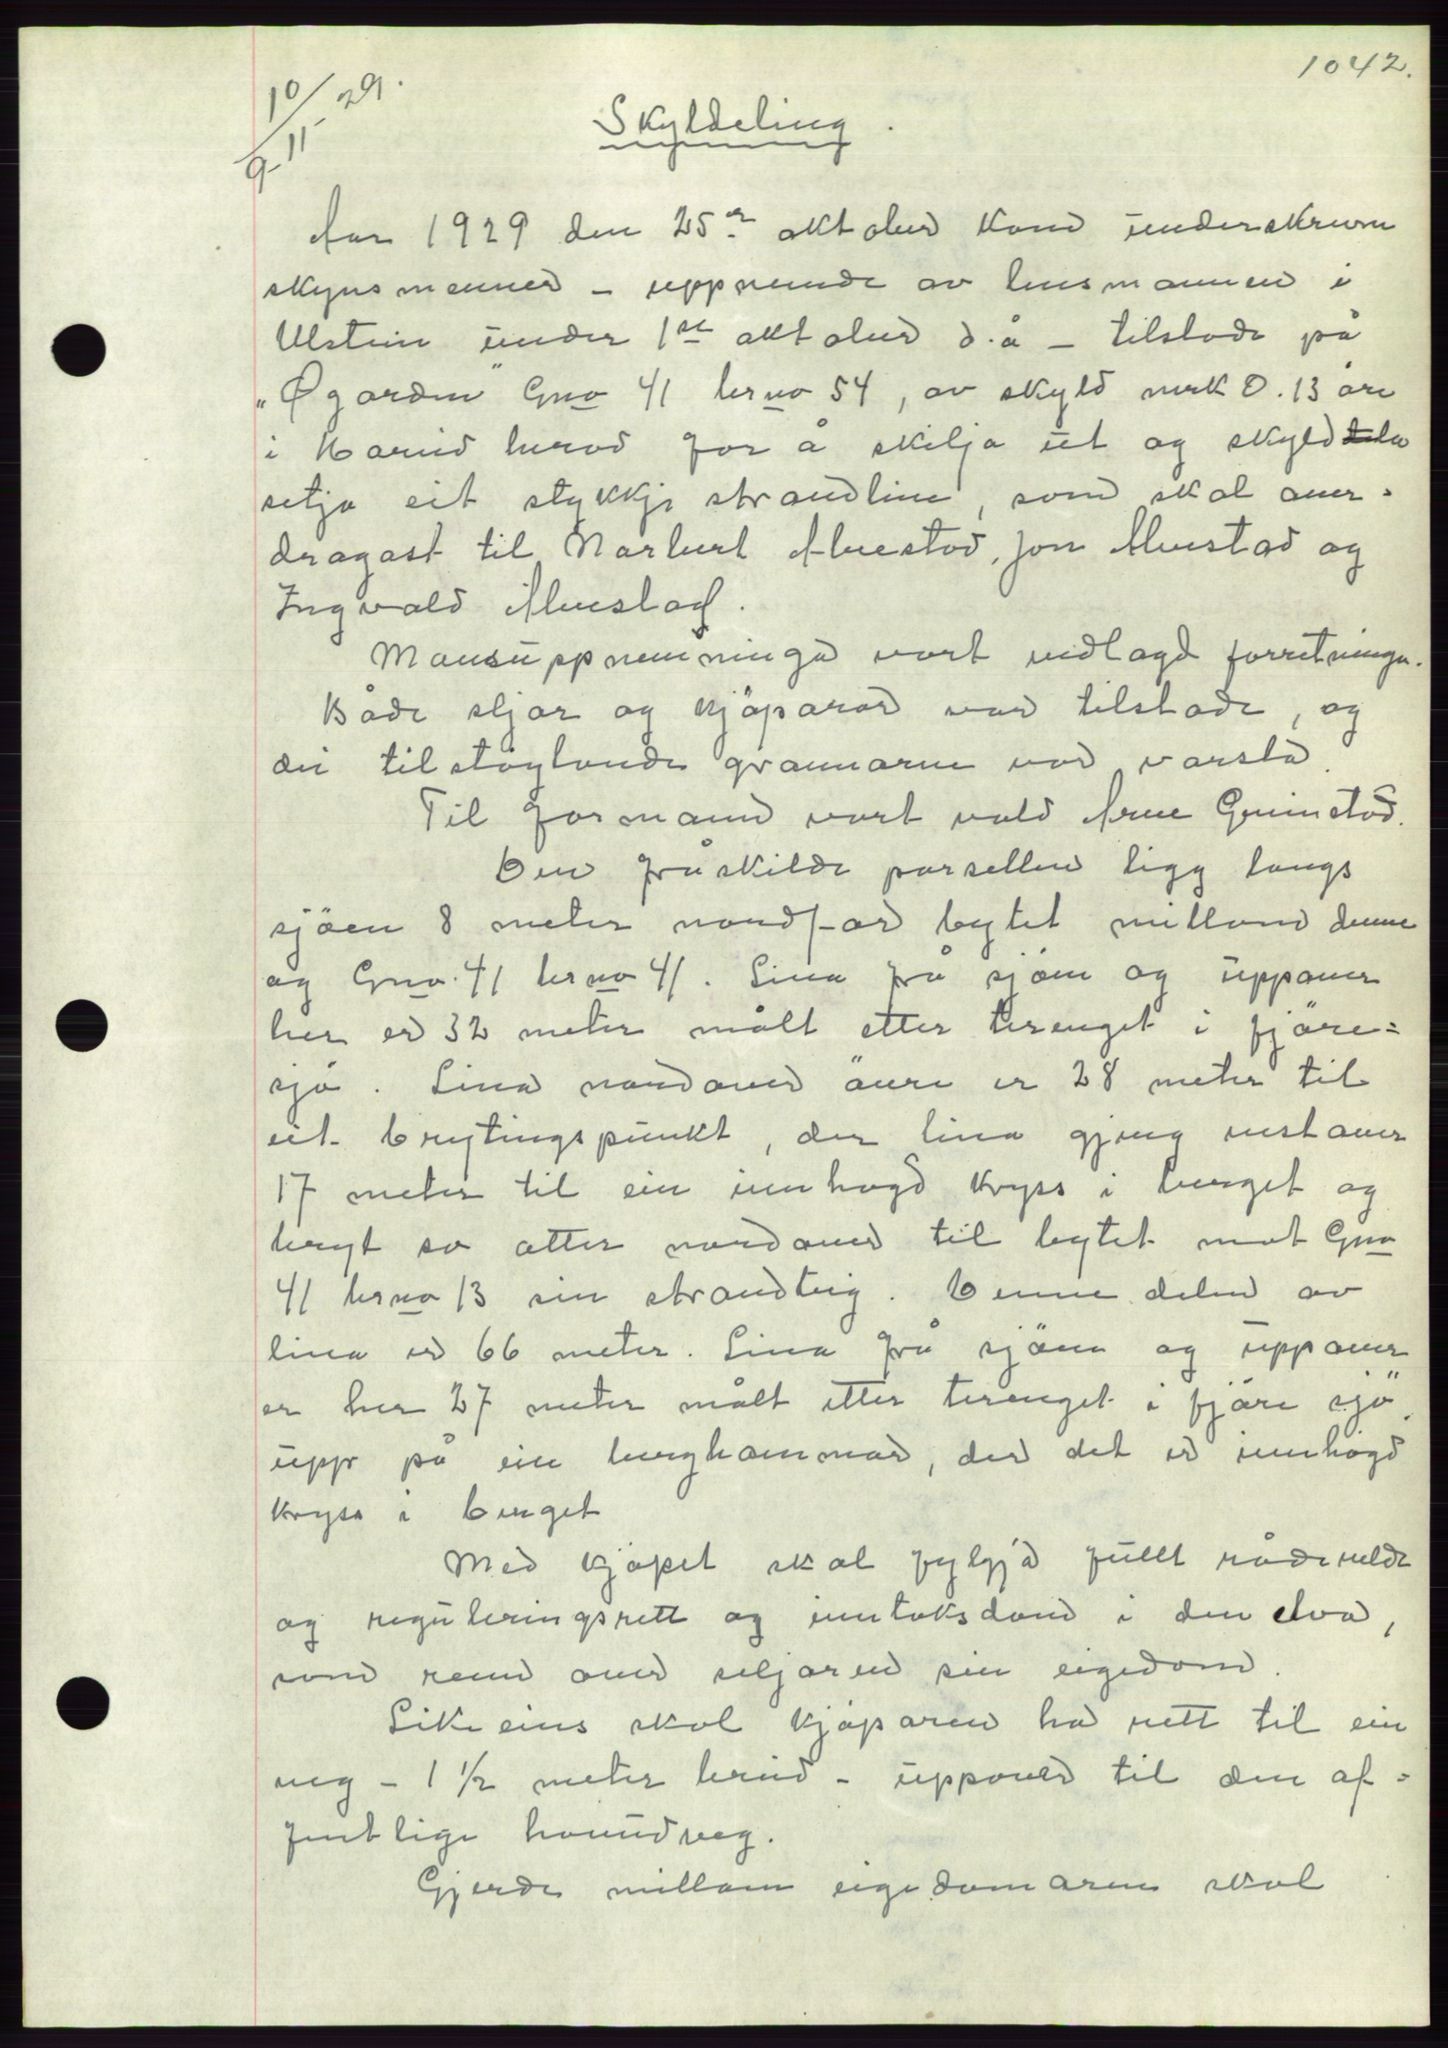 1042.
10/9-11-29.
Skyldeling.
Aar 1929 den 25de oktober kom underskrivne
skynsmenner - uppnemde av lensmannen i
Ulstein under 1ste oktober d.å - tilstode på
"Øgarden" Gno 41 brno 54, av skyld mrk 0.13 øre
i Hareid herad for å skilja ut og skyld dela
setja eit stykkje strandline, som skal over-
dragast til Norbert Alvestad, Jon Alvestad og
Ingvald Alvestad.
Mansuppnemninga vart vedlagd forretninga.
Både seljar og kjøparar var tilstade, og
dei tilstøytande grannarne var varsla.
Til formann vart vald Arne Grimstad.
Den fråskilde parsellen ligg langs
sjøen 8 meter nordfor bytet millom denne
og Gno. 41 brno 41. Lina frå sjøen og uppover
her er 32 meter målt etter terenget i fjøre-
sjø. Lina nordover øvre er 28 meter til
eit brytingspunkt, der lina gjeng vestover
17 meter til ein innhogd kryss i berget og
bryt so atter nordover til bytet mot Gno
41 brno 13 sin strandteig. Denne delen av
lina er 66 meter. Lina frå sjøen og uppover
er her 27 meter målt etter terenget i fjøre sjø
upp på ein berghammar, der det er innhogd
kryss i berget
Med kjøpet skal fylgja fullt råderelde
og reguleringsrett og inntaksdam i den elva,
som renn over seljaren sin eigedom.
Like eins skal kjøparen ha rett til ein
veg - 1 ½ meter breid - uppover til den of-
fentlige hovudveg.
Gjerde millom eigedomaren skal